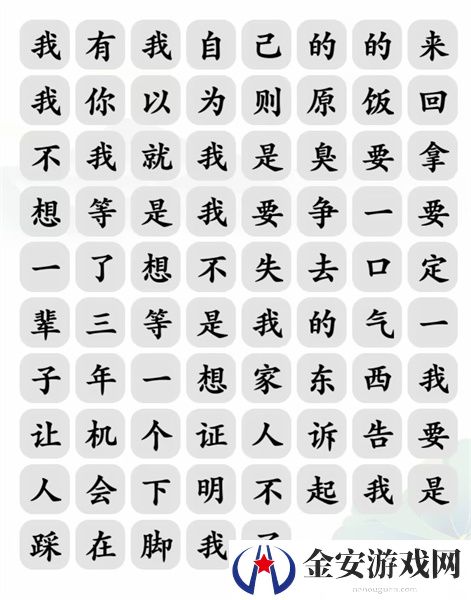 我有我自己的的来
我你以为则原饭回
不我就我是臭要拿
想等是我要争一要
一了想不失去口定
辈三等是我的气一
子年一想家东西我
让机个证人诉告要
人会下明不起我是
踩在脚我
金安游戏网